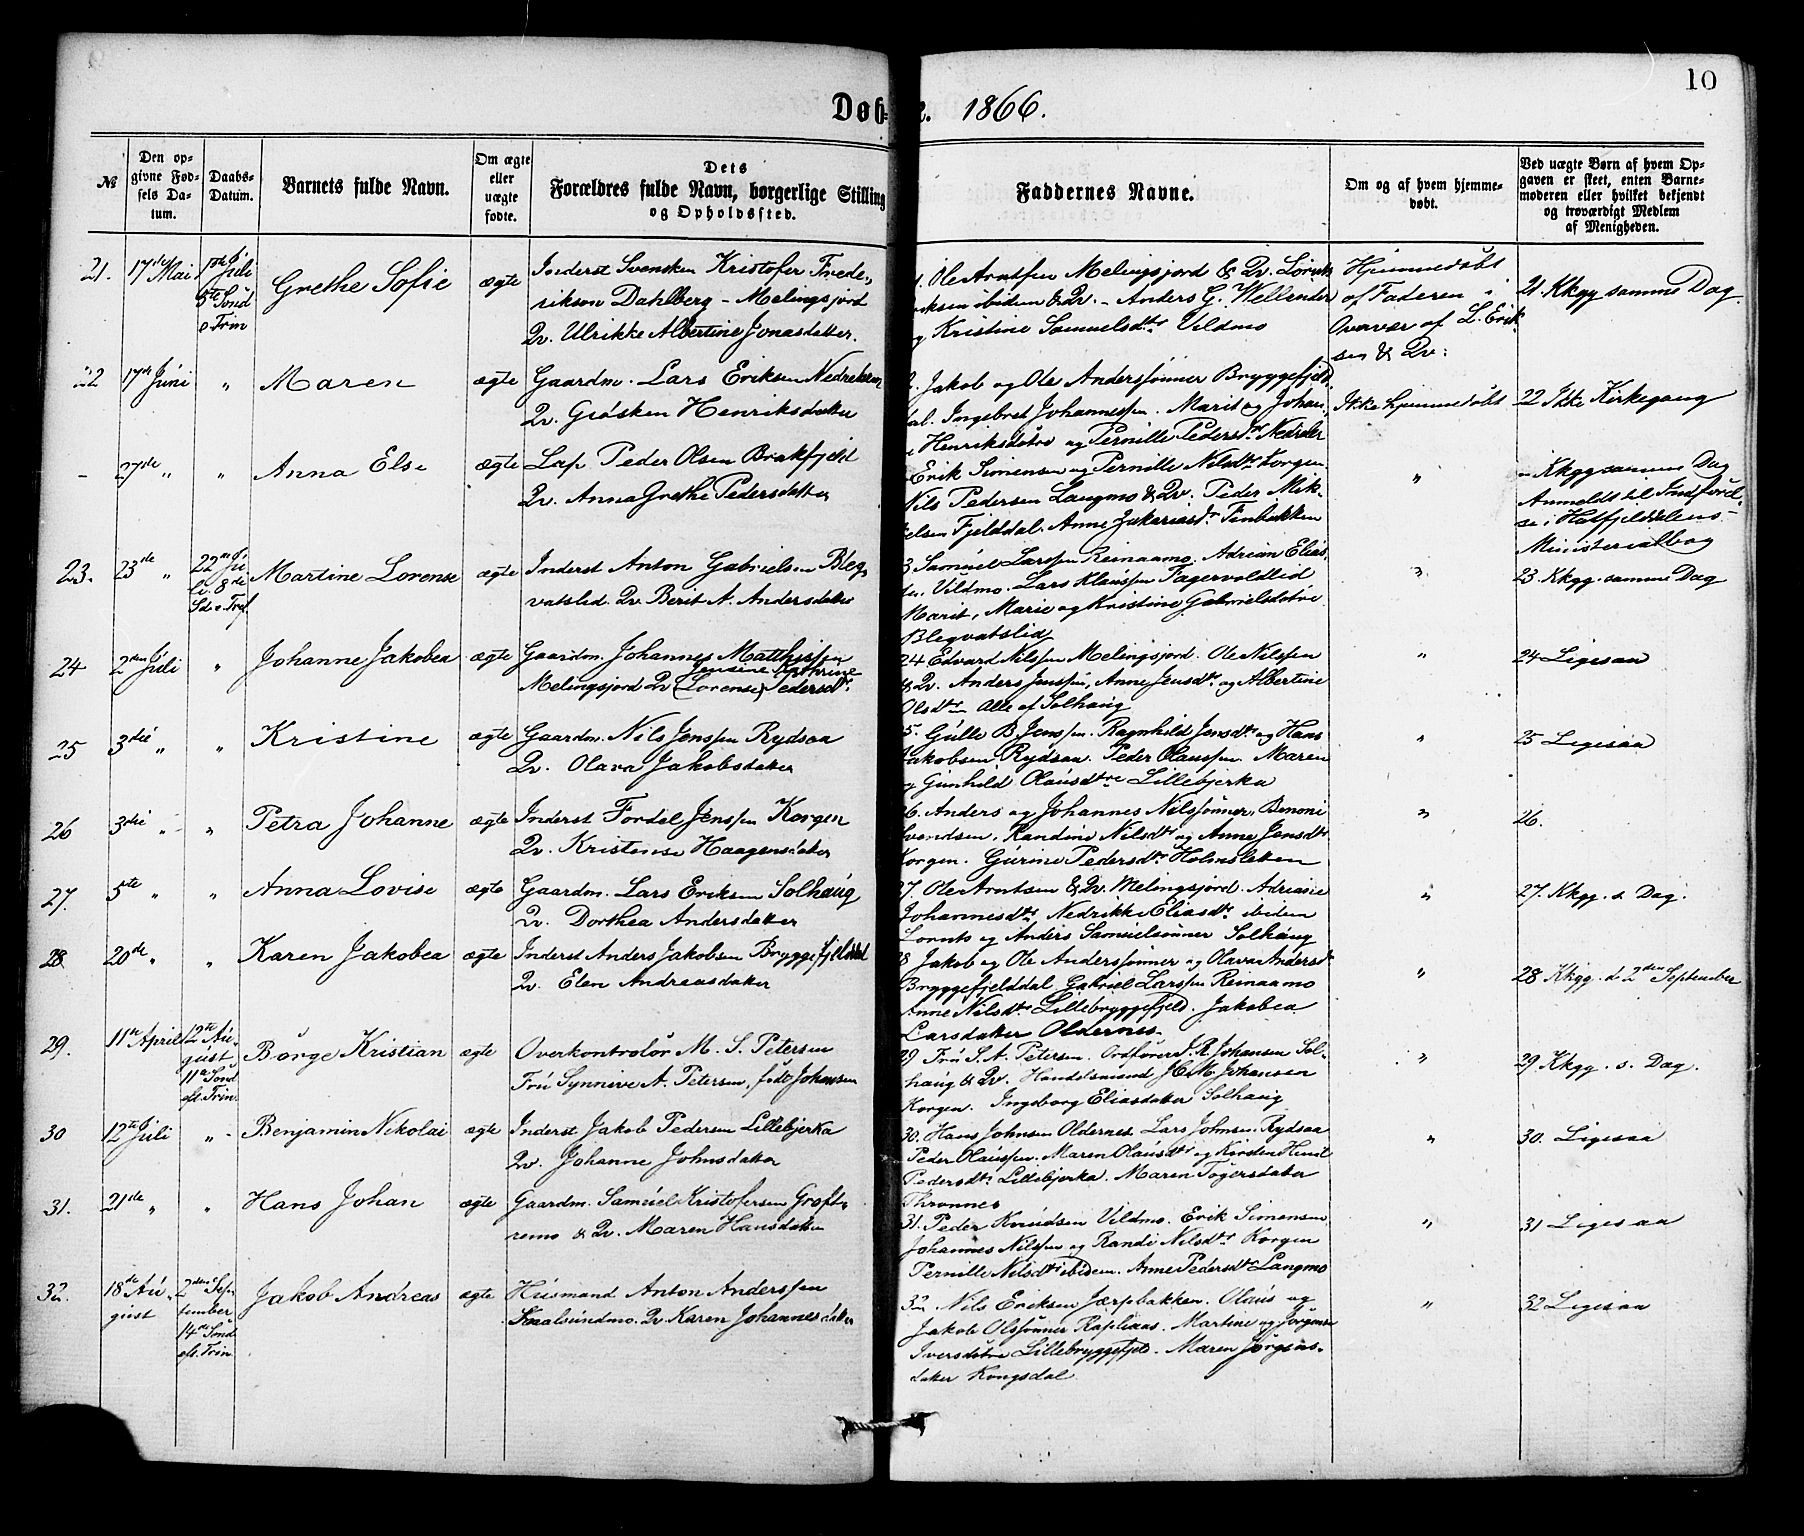 10
Døb- e. 1866.
№
Den op-
givne Fød-
sels Da-
tum.
Daabs-
Datum.
Barnets fulde Navn.
Om ægte
eller
uægte
fødte.
Dets
Forældres fulde Navn, borgerlige Stilling
og Opholdssted.
Faddernes Navne.
Om og af hvem hjemme-
døbt.
Ved uægte Børn af hvem Op-
gaven er skeet, enten Barne-
moderen eller hvilket bekjendt
og troværdigt Medlem
af Menigheden.
21. 17de Mai
1ste Juli
5te Sønd
e. Trin
Grethe Sofie
ægte
Inderst Svensken Kristofer Frede-
rikson Dahlberg - Melingsjord
Qv. Ulrikke Albertine Jonasdatter
Ole Arntssen Melingsjord & Qv. Lornts
Eriksen ibidem & Qv. - Anders G. Wellinder
og Kristine Samuelsdtr Vildmo
Hjemmedøbt
af Faderen i
Overvær af L. Erik-
sen & Qv:
21. Kkgg samme Dag.
22 17de Juni " Maren
ægte
Gaardm. Lars Eriksen Nedreleren
Qv. Gjøsken Henriksdatter
Jakob og Ole Anderssønner Bryggefjeld
dal. Ingebret Johannessen. Marit og Johan
Henriksdøtre og Pernille Pedersdtr Nedreler
Ikke hjemmedøbt
22 Ikke Kirkegang
- 27de " " Anna Else
ægte
Lap. Peder Olsen Brakfjeld
Qv. Anna Grethe Pedersdatter
Erik Simensen og Pernille Nilsdtr Korgen
Nils Pedersen Langmo & Qv. Peder Mik-
kelsen Fjelddal. Anne Zakariasdtr Finbakken
"
" Kkgg samme Dag
Anmeldt til Indførel-
se i Hatfjelddalens
Ministerialbog
23. 23de "
22de Ju-
li. 8de
Sd. e. Tref.
Martine Lorense
ægte
Inderst Anton Gabrielsen Bleg
vatslid. Qv. Berit A. Andersdatter
3 Samuel Larssen Reinaamo. Adrian Elias
sen. Vildmo. Lars Klaussen Fagervoldlid
Marit, Marie og Kristine Gabrielsdøtre
Blegvatslid
"
23. Kkgg. samme Dag
24 2den Juli " Johanne Jakobea
ægte
Gaardm. Johannes Matthissen
Jensine Kathrine
Melingsjord Qv (Lorense) Pedersdtr.
24 Edvard Nilssen Melingsjord. Ole Nilssen
& Qv. Anders Jenssen, Anne Jensdtr og Albertine
Olsdtr Alle af Solhaug
"
24 Ligesaa
25 3die " " Kristine
ægte
Gaardm. Nils Jenssen Rydsaa
Qv. Olava Jakobsdatter
5. Gulle B. Jenssen. Ragnhild Jensdtr og Hans
Jakobsen Rydsaa. Peder Olaussen. Maren
og Gunhild Olausdtre Lillebjerka
"
25 Ligesaa
26 3die " " Petra Johanne
ægte
Inderst Fordel Jenssen Korgen
Qv. Kristense Haagensdatter
26. Anders og Johannes Nilssønner, Benoni
Svendsen. Randine Nilsdtr og Anne Jensdtr
Korgen. Gurine Pedersdtr Holmsletten
"
26.
27. 5te " " Anna Lovise
ægte
Gaardm. Lars Eriksen Solhaug
Qv. Dorthea Andersdatter
27. Ole Arntsen & Qv. Melingsjord. Adriane
Johannesdtr Nedrikke Eliasdtr ibidem
Lornts og Anders Samuelsønner Solhaug
"
27. Kkgg. s. Dag.
28 20de " " Karen Jakobea
ægte
Inderst Anders Jakobsen Bryggefjelddal
Qv. Elen Andreasdatter
28 Jakob og Ole Anderssønner og Olava Andersdr
Bryggefjelddal. Gabriel Larssen Reinaamo
Anne Nilsdtr Lillebryggefjeld. Jakobea
Larsdatter Oldernes
"
28 Kkgg. d. 2den September
29. 11te April
12te Au-
gust
11te Sønd
eft. Trin.
Børge Kristian
ægte
Overkontrolør M. S. Petersen
Fru Synnive A. Petersen, født Johansen
29 Fru S. A. Petersen. Ordfører J. R. Johansen Sol-
haug & Qv. Handelsmand J. C. M. Johansen
Korgen. Ingeborg Eliasdatter Solhaug
"
29 Kkgg. s. Dag.
30 12te Juli " Benjamin Nikolai
ægte
Inderst Jakob Pedersen Lillebjerka
Qv. Johanne Johnsdatter
30. Hans Johnsen Oldernes. Lars Johnsen Rydsaa
Peder Olaussen. Maren Olausdtr og Kirsten
Pedersdtr Lillebjerka. Maren Togersdatter
Thronnes
"
30. Ligesaa
31. 21de " " Hans Johan
ægte
Gaardm. Samuel Kristofersen Grøft-
remo & Qv. Maren Hansdatter
31 Peder Knudsen Vildmo. Erik Simensen
Johannes Nilssen og Randi Nilsdtr Korgen
Pernille Nilsdtr ibidem. Anne Pedersdtr Langmo
"
31 Ligesaa
32. 18de Au-
gust
2den Sep-
tember
14de Sønd
eft. Trin
Jakob Andreas
ægte
Husmand Anton Anderssen
Svaalsundmo. Qv. Karen Johannesdatter
32. Nils Eriksen Jærpbakken. Olaus og
Jakob Olssønner Rapliaas. Martine og Jørgine
Iversdøtre Lillebryggefjeld. Maren Jørgens-
datter Kongsdal
"
32 Ligesaa